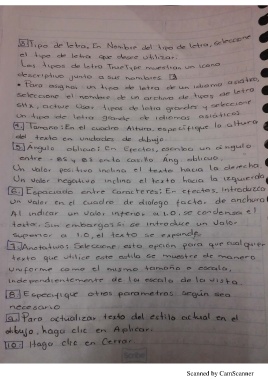 3. Tipo de letra. En Nombre del tipo de letra, seleccione
el tipo de letra que desee utilizar.
Los tipos de letra TrueType muestran un icono
descriptivo junto a sus nombres
• Para asignar un tipo de letra de un idioma asiático,
seleccione el nombre de un archivo de tipos de letra
SHX, active Usar tipos de letra grandes y seleccione
un tipo de letra grande de idiomas asiáticos)
4. Tamaño: En el cuadro Altura, especifique la altura
del texto en unidades de dibujo
5. Angulo oblicuo: En Efectos, escriba un ángulo
entre -85 y 85 en la casilla Ang. oblicuo.
Un valor positivo inclina el texto hacia la derecha.
Un valor negativo inclina el texto hacia la izquierda
6. Espaciado entre Caracteres: En efectos, introduzca
un valor en el cuadro de dialogo factor de anchura
Al indicar un valor inferior a 1.0, se condensa el
texto. Sin embargo si se introduce un valor
superior a 1.0, el texto se expande.
7. Anotativos: Seleccione esta opción para que cualquier
texto que utilice este estilo se muestre de manera
uniforme como el mismo tamaño o escala,
independientemente de la escala de la vista.
8. Especifique otros parametros según sea
necesario
9. Para actualizar texto del estilo actual en el
dibujo, haga clic en Aplicar.
10. Haga clic en Cerrar.
Scanned by CamScanner